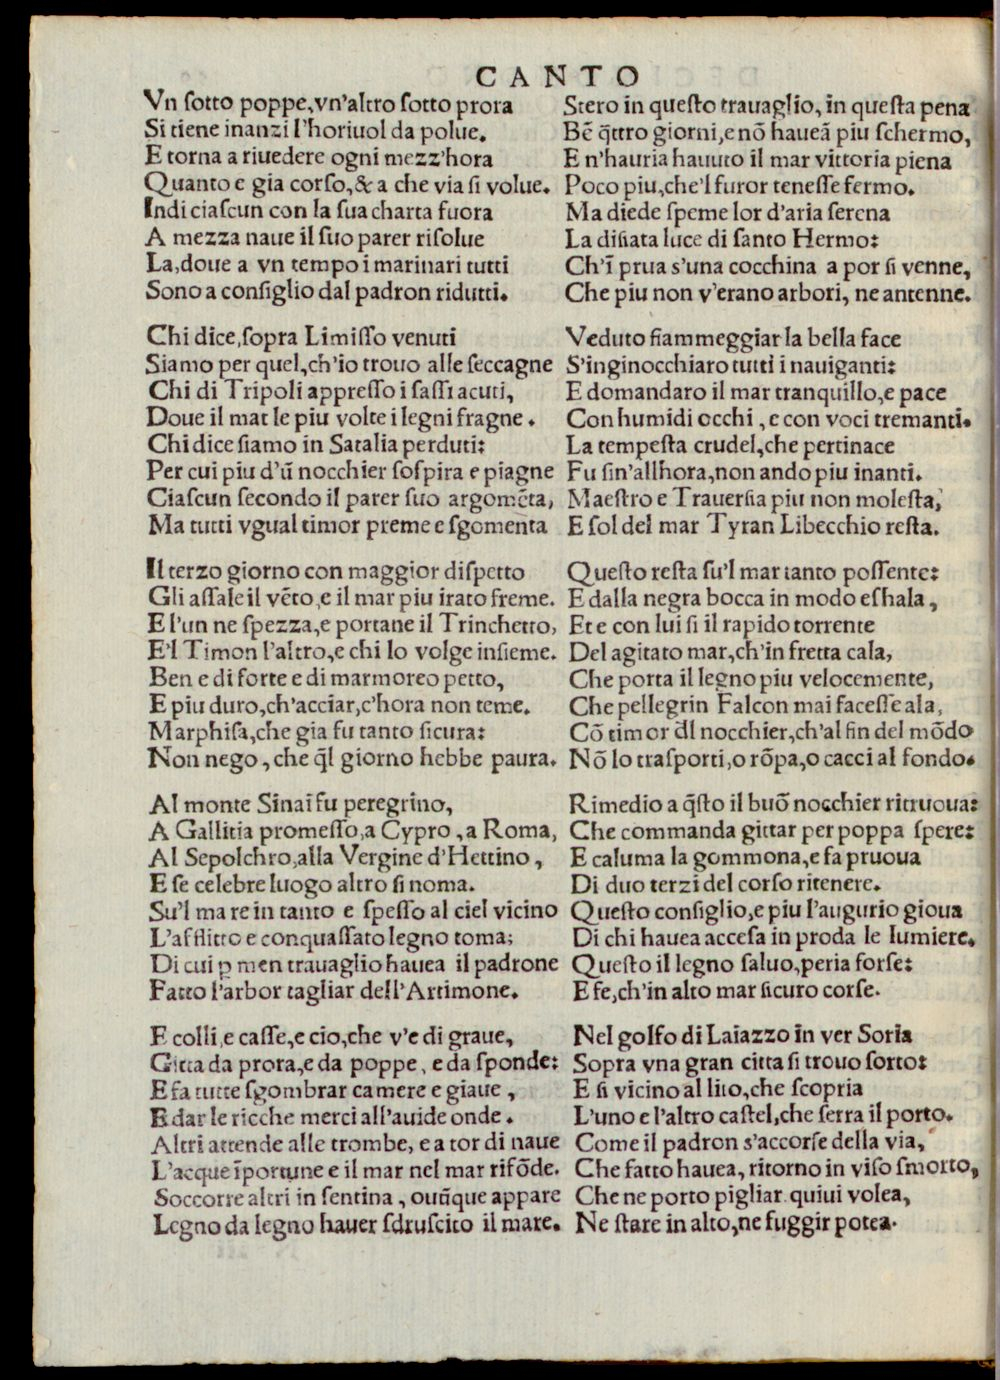 CANTO
Vn ſotto poppe, vn'altro ſotto prora
Si tiene inanzi l'horiuol da polue.
E torna a riuedere ogni mezz'hora
Quanto e gia corſo, & a che via ſi volue.
Indi ciaſcun con la ſua charta fuora
A mezza naue il ſuo parer riſolue
La, doue a vn tempo i marinari tutti
Sono a conſiglio dal padron ridutti.
Chi dice, ſopra Limiſſo venuti
Siamo per quel, ch'io trouo alle ſeccagne
Chi di Tripoli appreſſo i ſaſſi acuti,
Doue il mat le piu volte i legni fragne.
Chi dice ſiamo in Satalia perduti:
Per cui piu d'ũ nocchier ſoſpira e piagne
Ciaſcun ſecondo il parer ſuo argomẽta,
Ma tutti vgual timor preme e ſgomenta
Il terzo giorno con maggior diſpetto
Gli aſſale il vẽto, e il mar piu irato freme.
E l'un ne ſpezza, e portane il Trinchetto,
E'l Timon l'altro, e chi lo volge inſieme.
Ben e di forte e di marmoreo petto,
E piu duro, ch'acciar, c'hora non teme.
Marphiſa, che gia fu tanto ſicura:
Non nego, che q̃l giorno hebbe paura.
Al monte Sinai fu peregrino,
A Gallitia promeſſo, a Cypro, a Roma,
Al Sepolchro, alla Vergine d'Hettino,
E ſe celebre luogo altro ſi noma.
Su'l ma re in tanto e ſpeſſo al ciel vicino
L'afflitto e conquaſſato legno toma;
Di cui ꝑ men trauaglio hauea il padrone
Fatto l'arbor tagliar dell'Artimone.
E colli, e caſſe, e cio, che v'e di graue,
Gitta da prora, e da poppe, e da ſponde:
E fa tutte ſgombrar camere e giaue,
E dar le ricche merci all'auide onde.
Altri attende alle trombe, e a tor di naue
L'acque iportune e il mar nel mar rifõde.
Soccorre altri in ſentina, ouũque appare
Legno da legno hauer ſdruſcito il mare.
Stero in queſto trauaglio, in queſta pena
Bẽ q̃ttro giorni, e nõ haueã piu ſchermo,
E n'hauria hauuto il mar vittoria piena
Poco piu, che'l furor teneſſe fermo.
Ma diede ſpeme lor d'aria ſerena
La diſiata luce di ſanto Hermo:
Ch'ĩ prua s'una cocchina a por ſi venne,
Che piu non v'erano arbori, ne antenne.
Veduto fiammeggiar la bella face
S'inginocchiaro tutti i nauiganti:
E domandaro il mar tranquillo, e pace
Con humidi occhi, e con voci tremanti.
La tempeſta crudel, che pertinace
Fu ſin'allhora, non ando piu inanti.
Maeſtro e Trauerſia piu non moleſta,
E ſol del mar Tyran Libecchio reſta.
Queſto reſta ſu'l mar tanto poſſente:
E dalla negra bocca in modo eſhala,
Et e con lui ſi il rapido torrente
Del agitato mar, ch'in fretta cala,
Che porta il legno piu velocemente,
Che pellegrin Falcon mai faceſſe ala,
Cõ timor d̃l nocchier, ch'al fin del mõdo
Nõ lo traſporti, o rõpa, o cacci al fondo.
Rimedio a q̃ſto il buõ nocchier ritruoua:
Che commanda gittar per poppa ſpere:
E caluma la gommona, e fa pruoua
Di duo terzi del corſo ritenere.
Queſto conſiglio, e piu l'augurio gioua
Di chi hauea acceſa in proda le lumiere.
Queſto il legno ſaluo, peria forſe:
E fe, ch'in alto mar ſicuro corſe.
Nel golfo di Laiazzo in ver Soria
Sopra vna gran citta ſi trouo ſorto:
E ſi vicino al lito, che ſcopria
L'uno e l'altro caſtel, che ſerra il porto.
Come il padron s'accorſe della via,
Che fatto hauea, ritorno in viſo ſmorto,
Che ne porto pigliar quiui volea,
Ne ſtare in alto, ne fuggir potea.